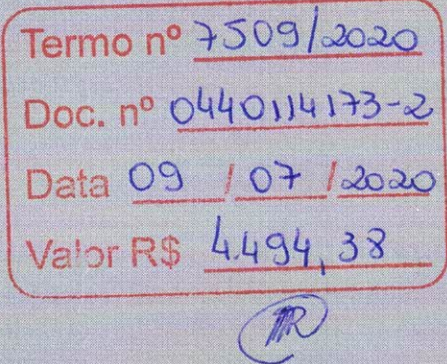 Termo nº 7509/2020
Doc. nº 0440114173-2
Data 09 / 07 / 2020
Valor R$ 4.494,38